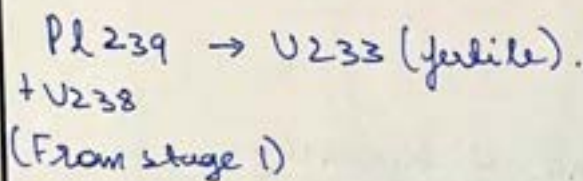 Pl239 → U233 (fertile).
+U238
(From stage 1)